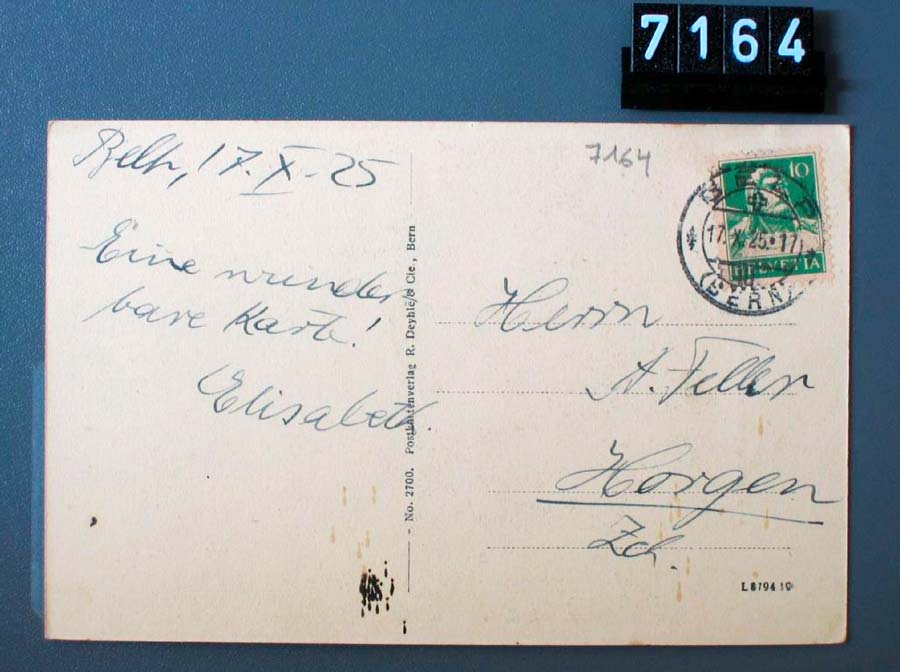 7164
7164
Belp, 17.X.25
Eine wunder
bare Karte!
Elisabeth.
- No. 2700. Postkartenverlag R. Deyhle & Cie., Bern
10
HELVETIA
17.X.25.17
(BERN)
Herrn
A. Feller
Horgen
Zch.
L 8794